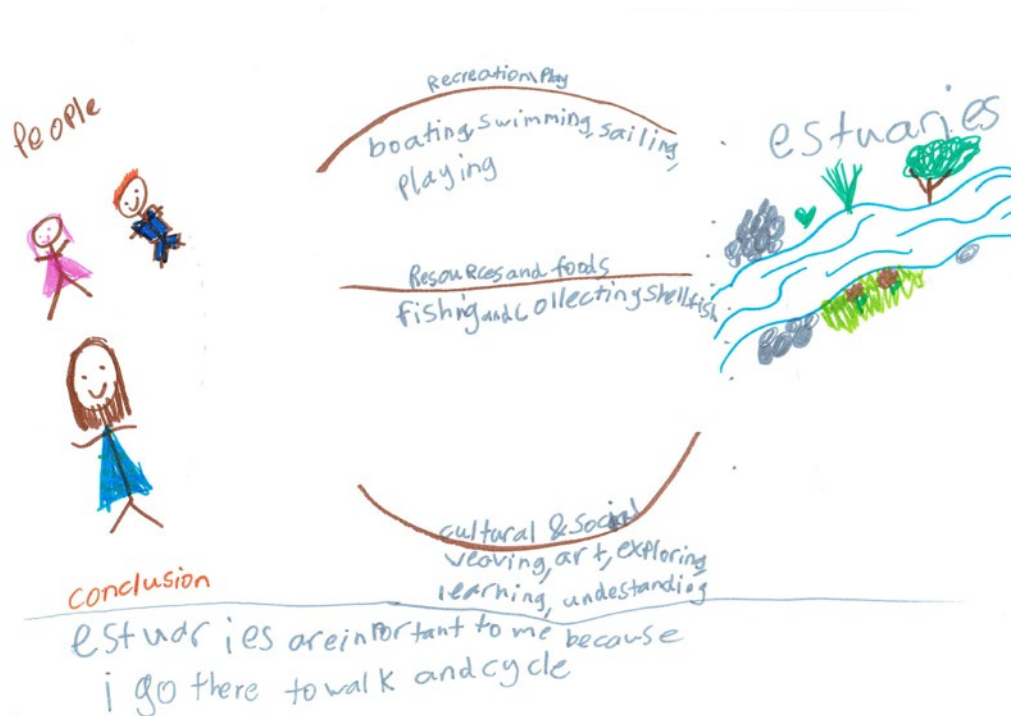 People
Recreation, Play
boating, swimming, sailing,
playing
estuaries
Resources and foods
fishing and collecting shellfish
cultural & social
veaving, art, exploring
learning, undestanding
conclusion
estuaries are inportant to me because
i go there to walk and cycle